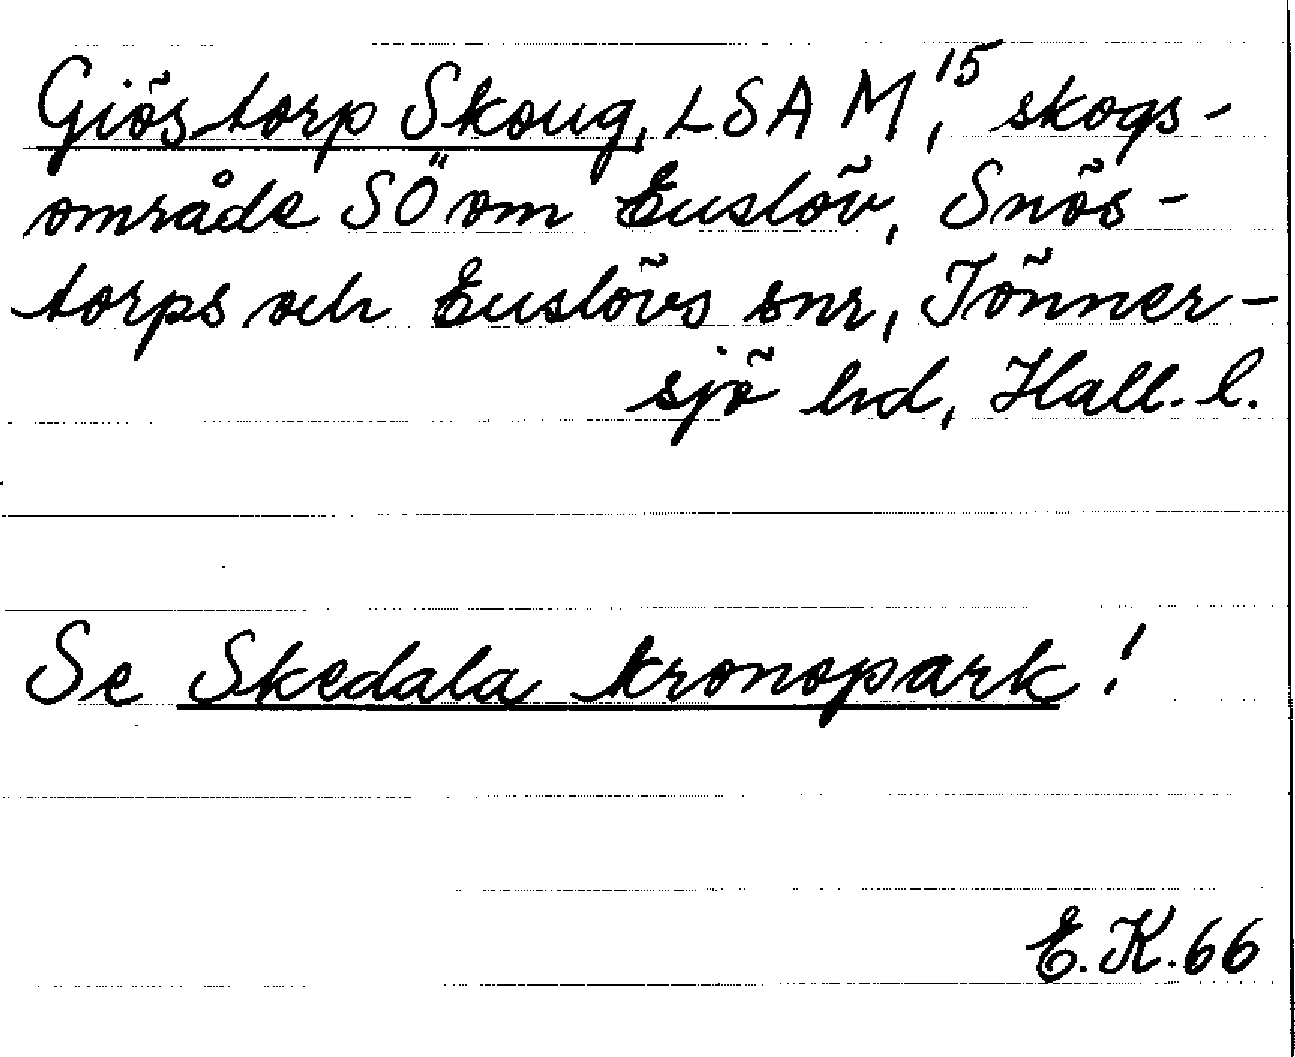 Giöstorp Skoug, LSA M¹⁵, skogs-
område SÖ om Euslöv, Snös-
torps och Euslövs snr, Tönner-
sjö hd, Hall. l.
Se Skedala kronopark!
E.K.66